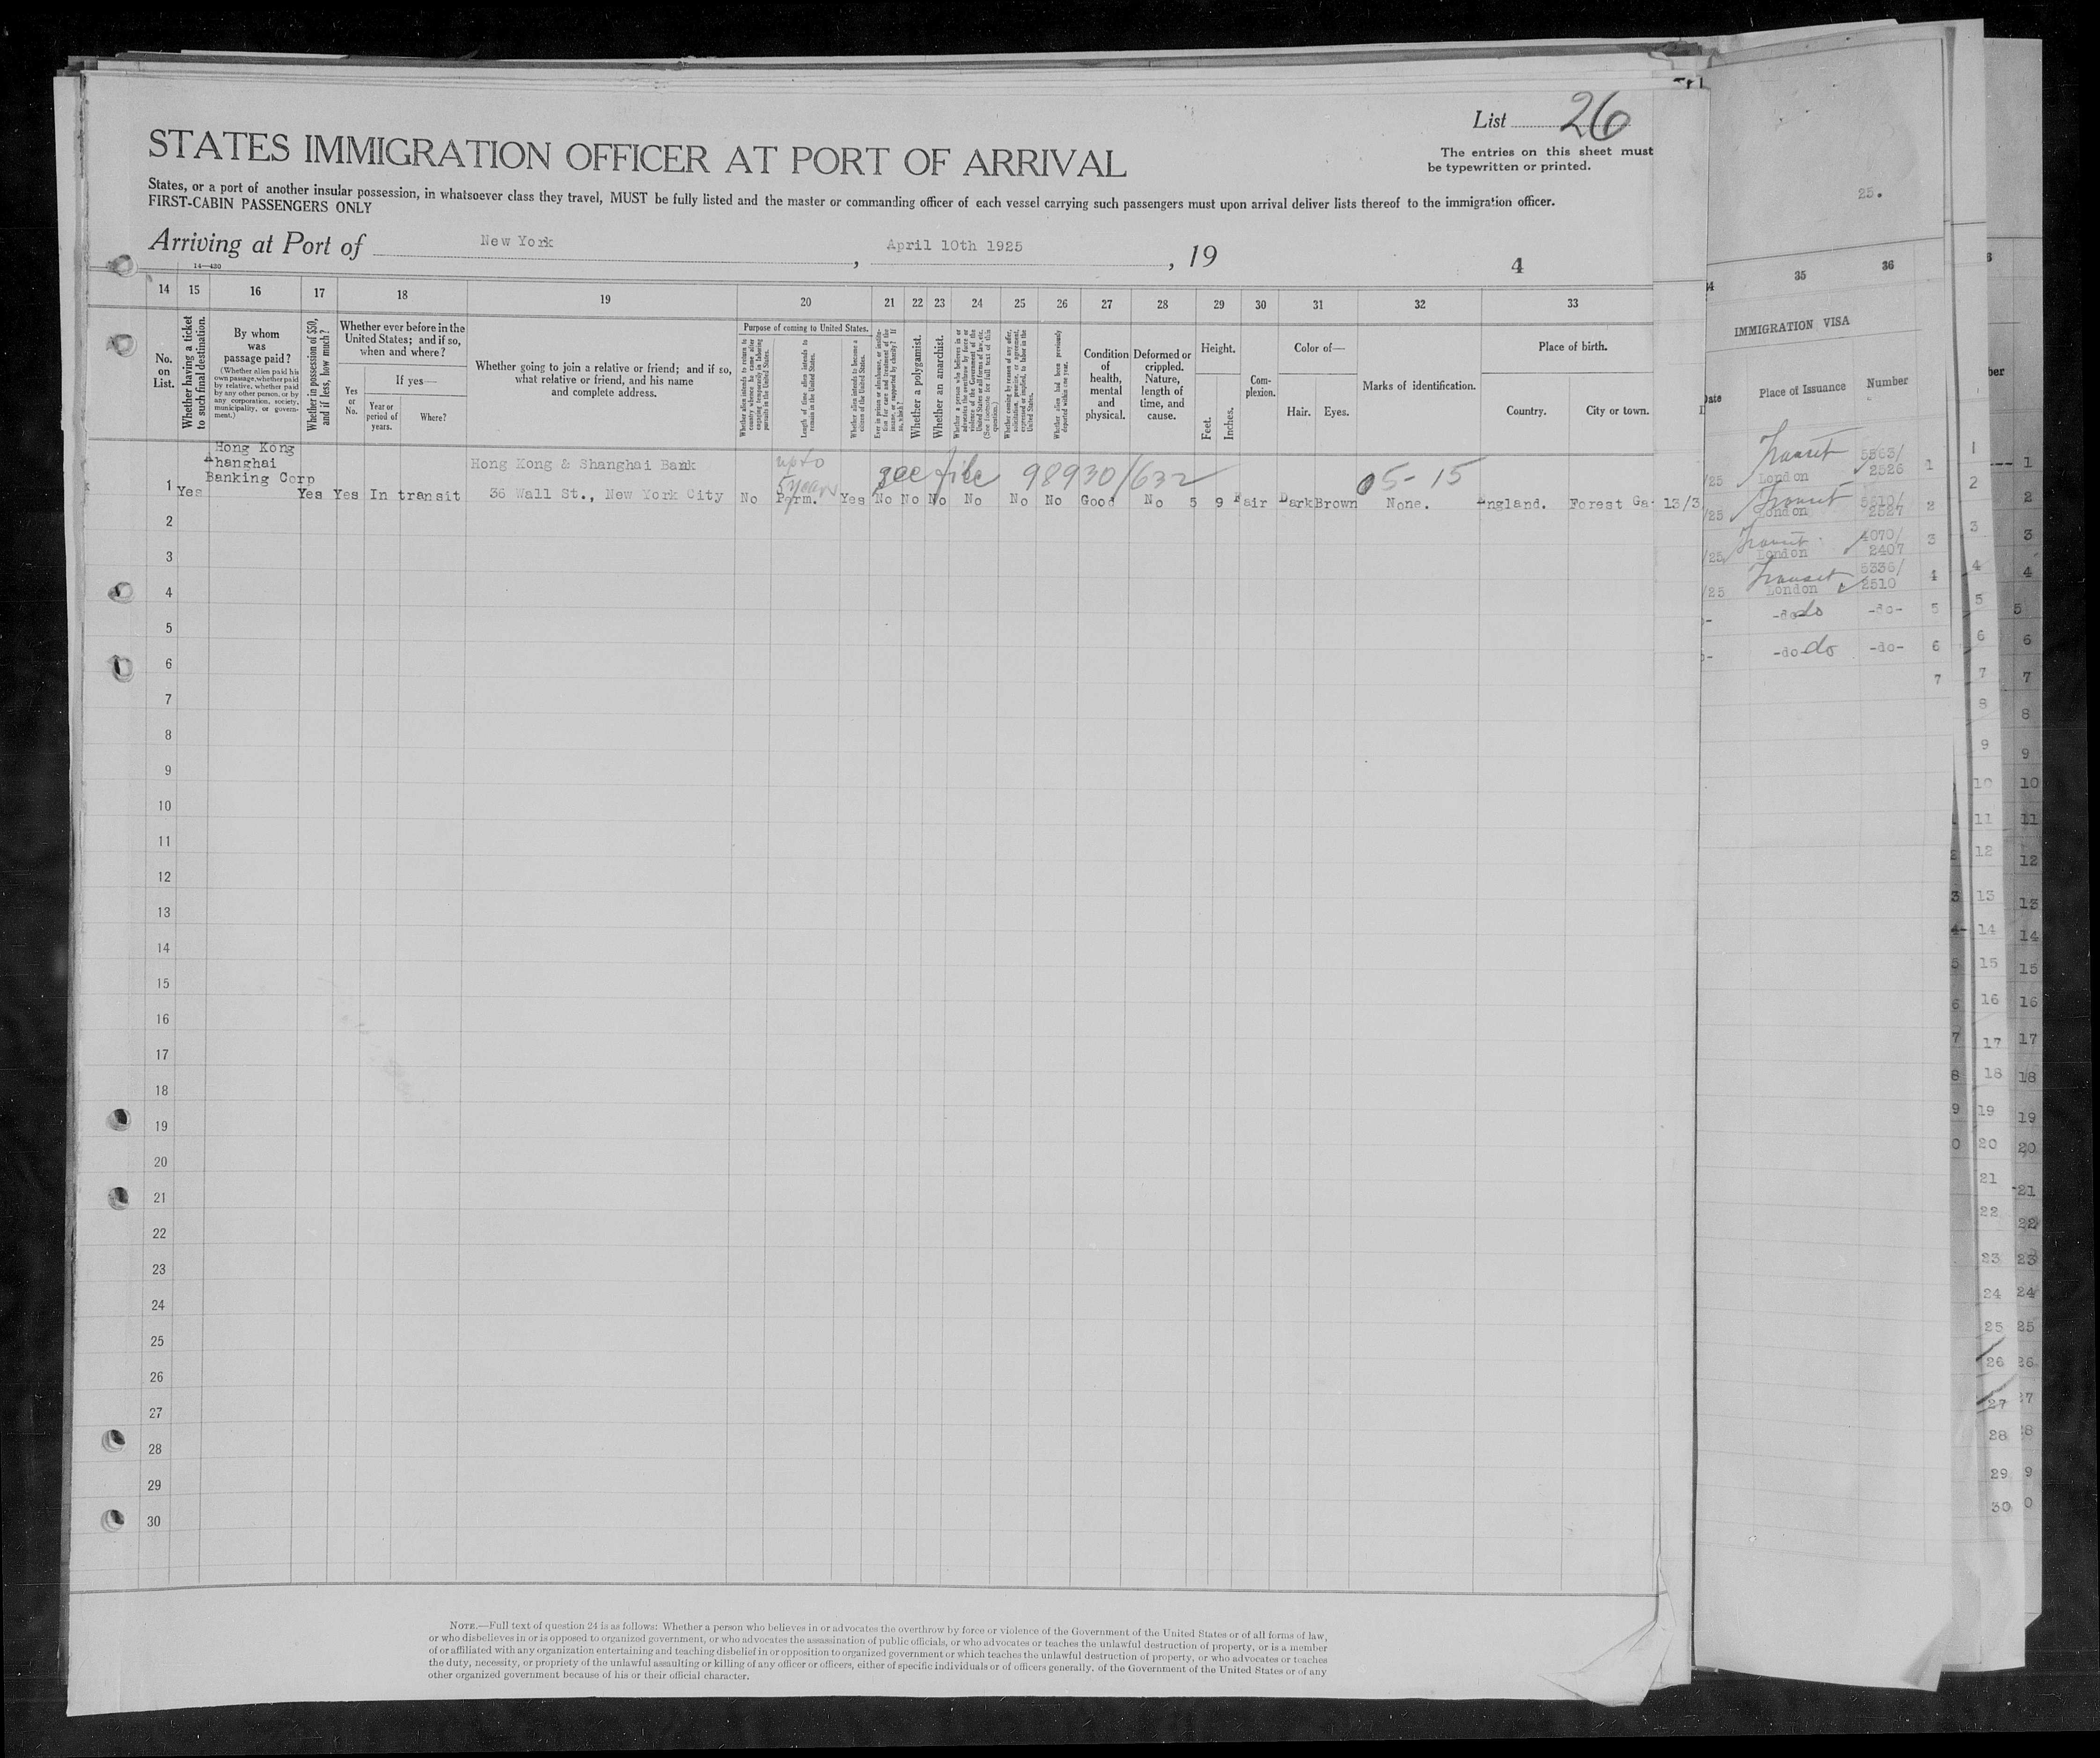 List 26
The entries on this sheet must
be typewritten or printed.
STATES IMMIGRATION OFFICER AT PORT OF ARRIVAL
States, or a port of another insular possession, in whatsoever class they travel, MUST be fully listed and the master or commanding officer of each vessel carrying such passengers must upon arrival deliver lists thereof to the immigration officer.
FIRST-CABIN PASSENGERS ONLY
Arriving at Port of New York, April 10th 1925, 19
14—430
4
25.
14 15 16 17 18 19 20 21 22 23 24 25 26 27 28 29 30 31 32 33
35 36
No. on List.
Whether having a ticket to such final destination.
By whom was passage paid?
(Whether alien paid his own passage, whether paid by relative, whether paid by any other person, or by any corporation, society, municipality, or government.)
Whether in possession of $50, and if less, how much?
Whether ever before in the United States; and if so, when and where?
Yes or No.
If yes—
Year or period of years.
Where?
Whether going to join a relative or friend; and if so, what relative or friend, and his name and complete address.
Purpose of coming to United States.
Whether alien intends to return to country whence he came after engaging temporarily in laboring pursuits in the United States.
Length of time alien intends to remain in the United States.
Whether alien intends to become a citizen of the United States.
Ever in prison or almshouse, or institution for care and treatment of the insane, or supported by charity? If so, which?
Whether a polygamist.
Whether an anarchist.
Whether a person who believes in or advocates the overthrow by force or violence of the Government of the United States or all forms of law, etc. (See footnote for full text of this question.)
Whether coming by reason of any offer, solicitation, promise, or agreement, expressed or implied, to labor in the United States.
Whether alien had been previously deported within one year.
Condition of health, mental and physical.
Deformed or crippled. Nature, length of time, and cause.
Height.
Feet. Inches.
Complexion.
Color of—
Hair. Eyes.
Marks of identification.
Place of birth.
Country. City or town.
IMMIGRATION VISA
Date Place of Issuance Number
Hong Kong
Shanghai
Banking Corp
Hong Kong & Shanghai Bank
up to
5 years
see file 98930/632
05-15
1 Yes Yes Yes In transit 36 Wall St., New York City No Perm. Yes No No No No No No Good No 5 9 Fair Dark Brown None. England. Forest Ga 13/3
2
3
4
5
6
7
8
9
10
11
12
13
14
15
16
17
18
19
20
21
22
23
24
25
26
27
28
29
30
/25 Transit London 5563/2526 1
/25 Transit London 2527 2
/25 Transit London 4070/2407 3
/25 Transit London 5336/2510 4
-do- do -do- 5
-do- do -do- 6
7
NOTE.—Full text of question 24 is as follows: Whether a person who believes in or advocates the overthrow by force or violence of the Government of the United States or of all forms of law,
or who disbelieves in or is opposed to organized government, or who advocates the assassination of public officials, or who advocates or teaches the unlawful destruction of property, or is a member
of or affiliated with any organization entertaining and teaching disbelief in or opposition to organized government or which teaches the unlawful destruction of property, or who advocates or teaches
the duty, necessity, or propriety of the unlawful assaulting or killing of any officer or officers, either of specific individuals or of officers generally, of the Government of the United States or of any
other organized government because of his or their official character.